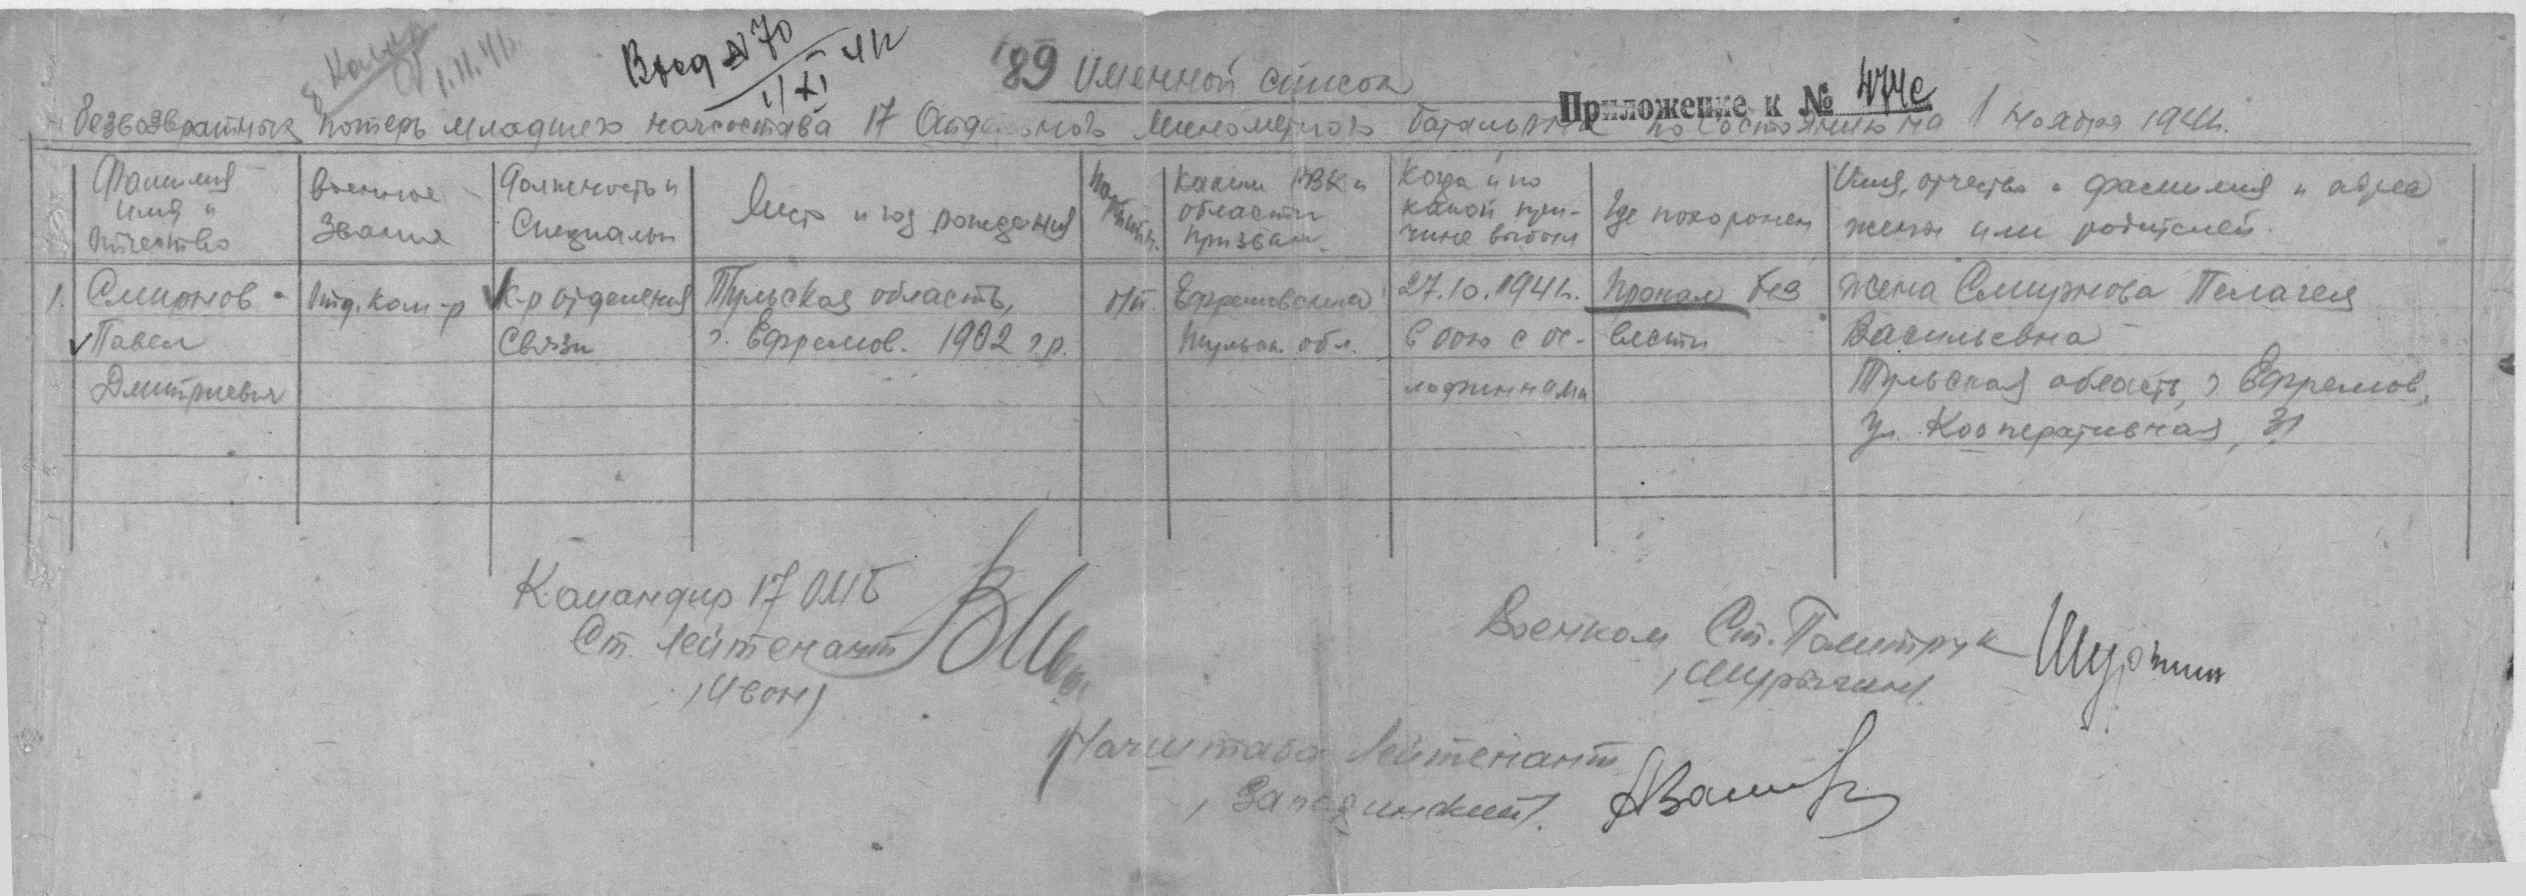 Вход № 70
1/XI 41г
1.11.41г.
89 Именной список
Приложение к № 474с
безвозвратных потерь младшего начсостава 17 Отдельного минометного батальона по состоянию на 1 ноября 1941г.
Фамилия имя и отчество
Военное звание
Должность и специальн
Место и год рождения
Партийн.
Каким РВК и области призван.
Когда и по какой причине выбыл
Где похоронен
Имя, отчество и фамилия и адрес жены или родителей.
1. Смирнов Мл. ком-р К-р отделения Тульская область, п/п. Ефремовским 27.10.1941г. Пропал без жена Смирнова Пелагея
Павел связи г. Ефремов. 1902 г.р. Тульск. обл. в бою с ос- вести Васильевна
Дмитриевич лофиннами Тульская область, г Ефремов,
ул. Кооперативная, 31
Командир 17 ОМБ
Ст. Лейтенант
/Ивон/
Военком Ст. Политрук
/Шурыгин/
Начштаба Лейтенант